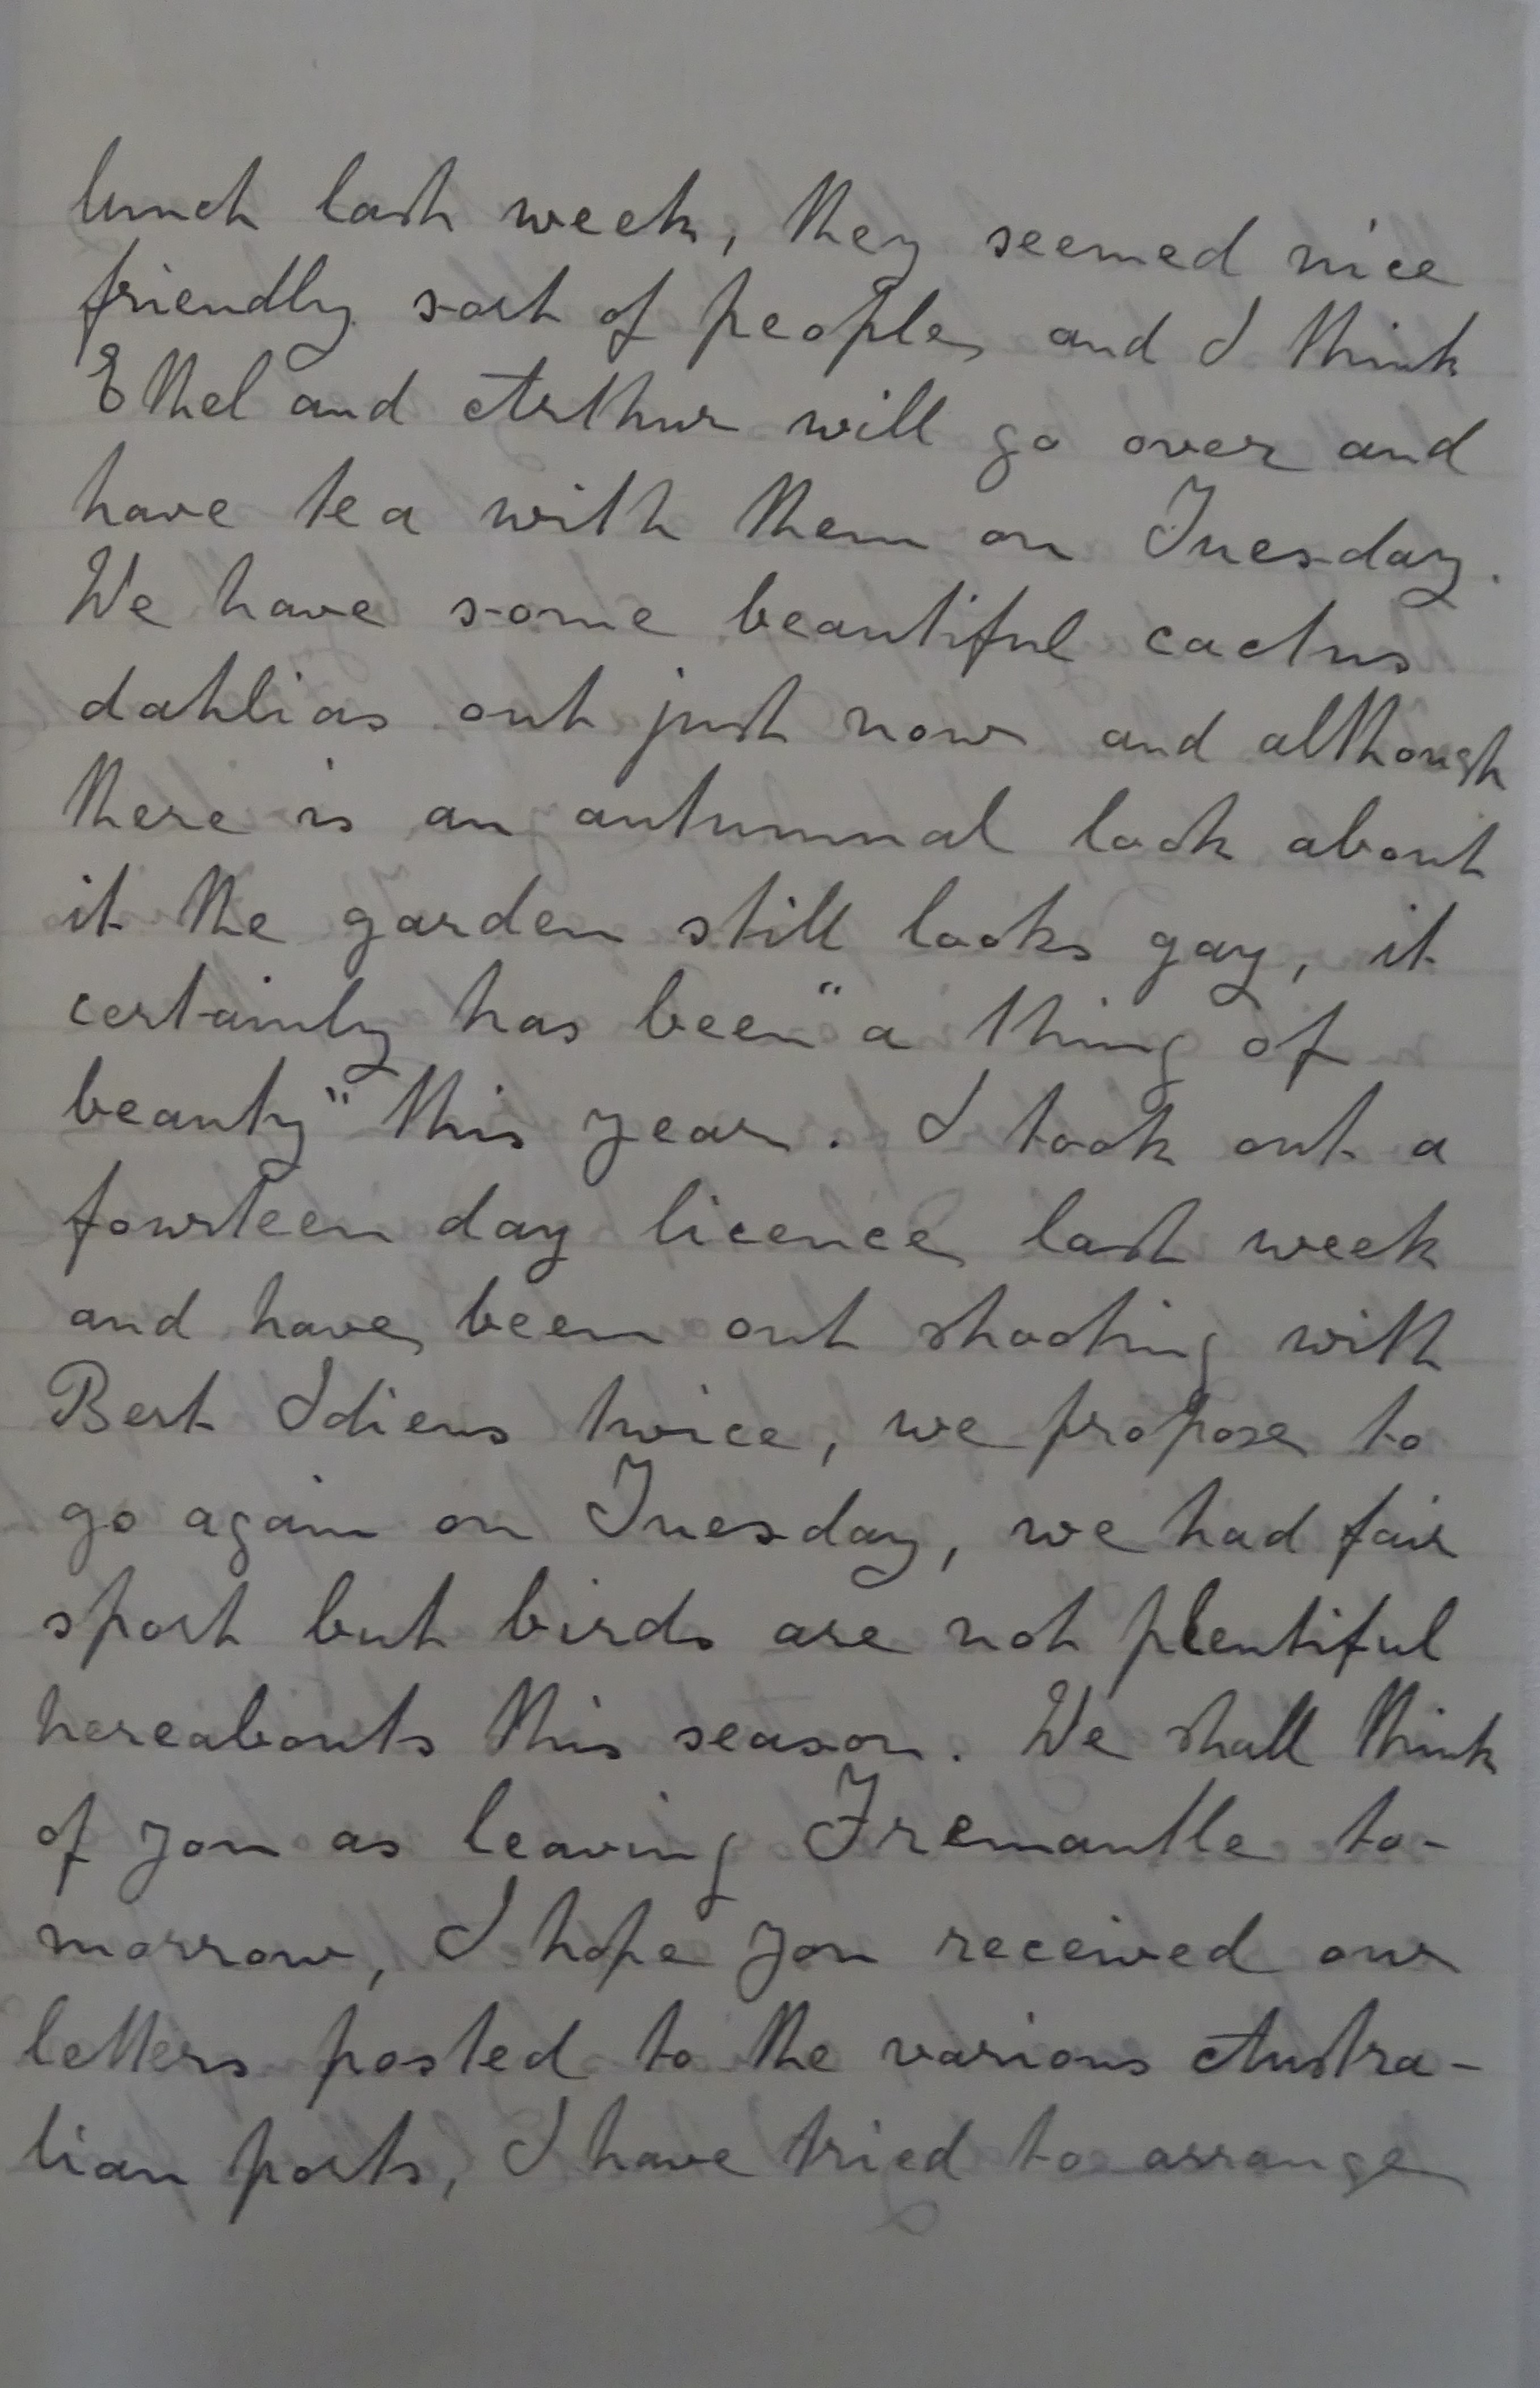 lunch last week, they seemed nice
friendly sort of people, and I think
Ethel and Arthur will go over and
have tea with them on Tuesday.
We have some beautiful cactus
dahlias out just now and although
there is an autumnal look about
it the garden still looks gay, it
certainly has been "a thing of
beauty" this year. I took out a
fourteen day licence last week
and have been out shooting with
Bert Idiens twice, we propose to
go again on Tuesday, we had fair
sport but birds are not plentiful
hereabouts this season. We shall think
of you as leaving Fremantle to-
morrow, I hope you received our
letters posted to the various Austra-
lian ports, I have tried to arrange